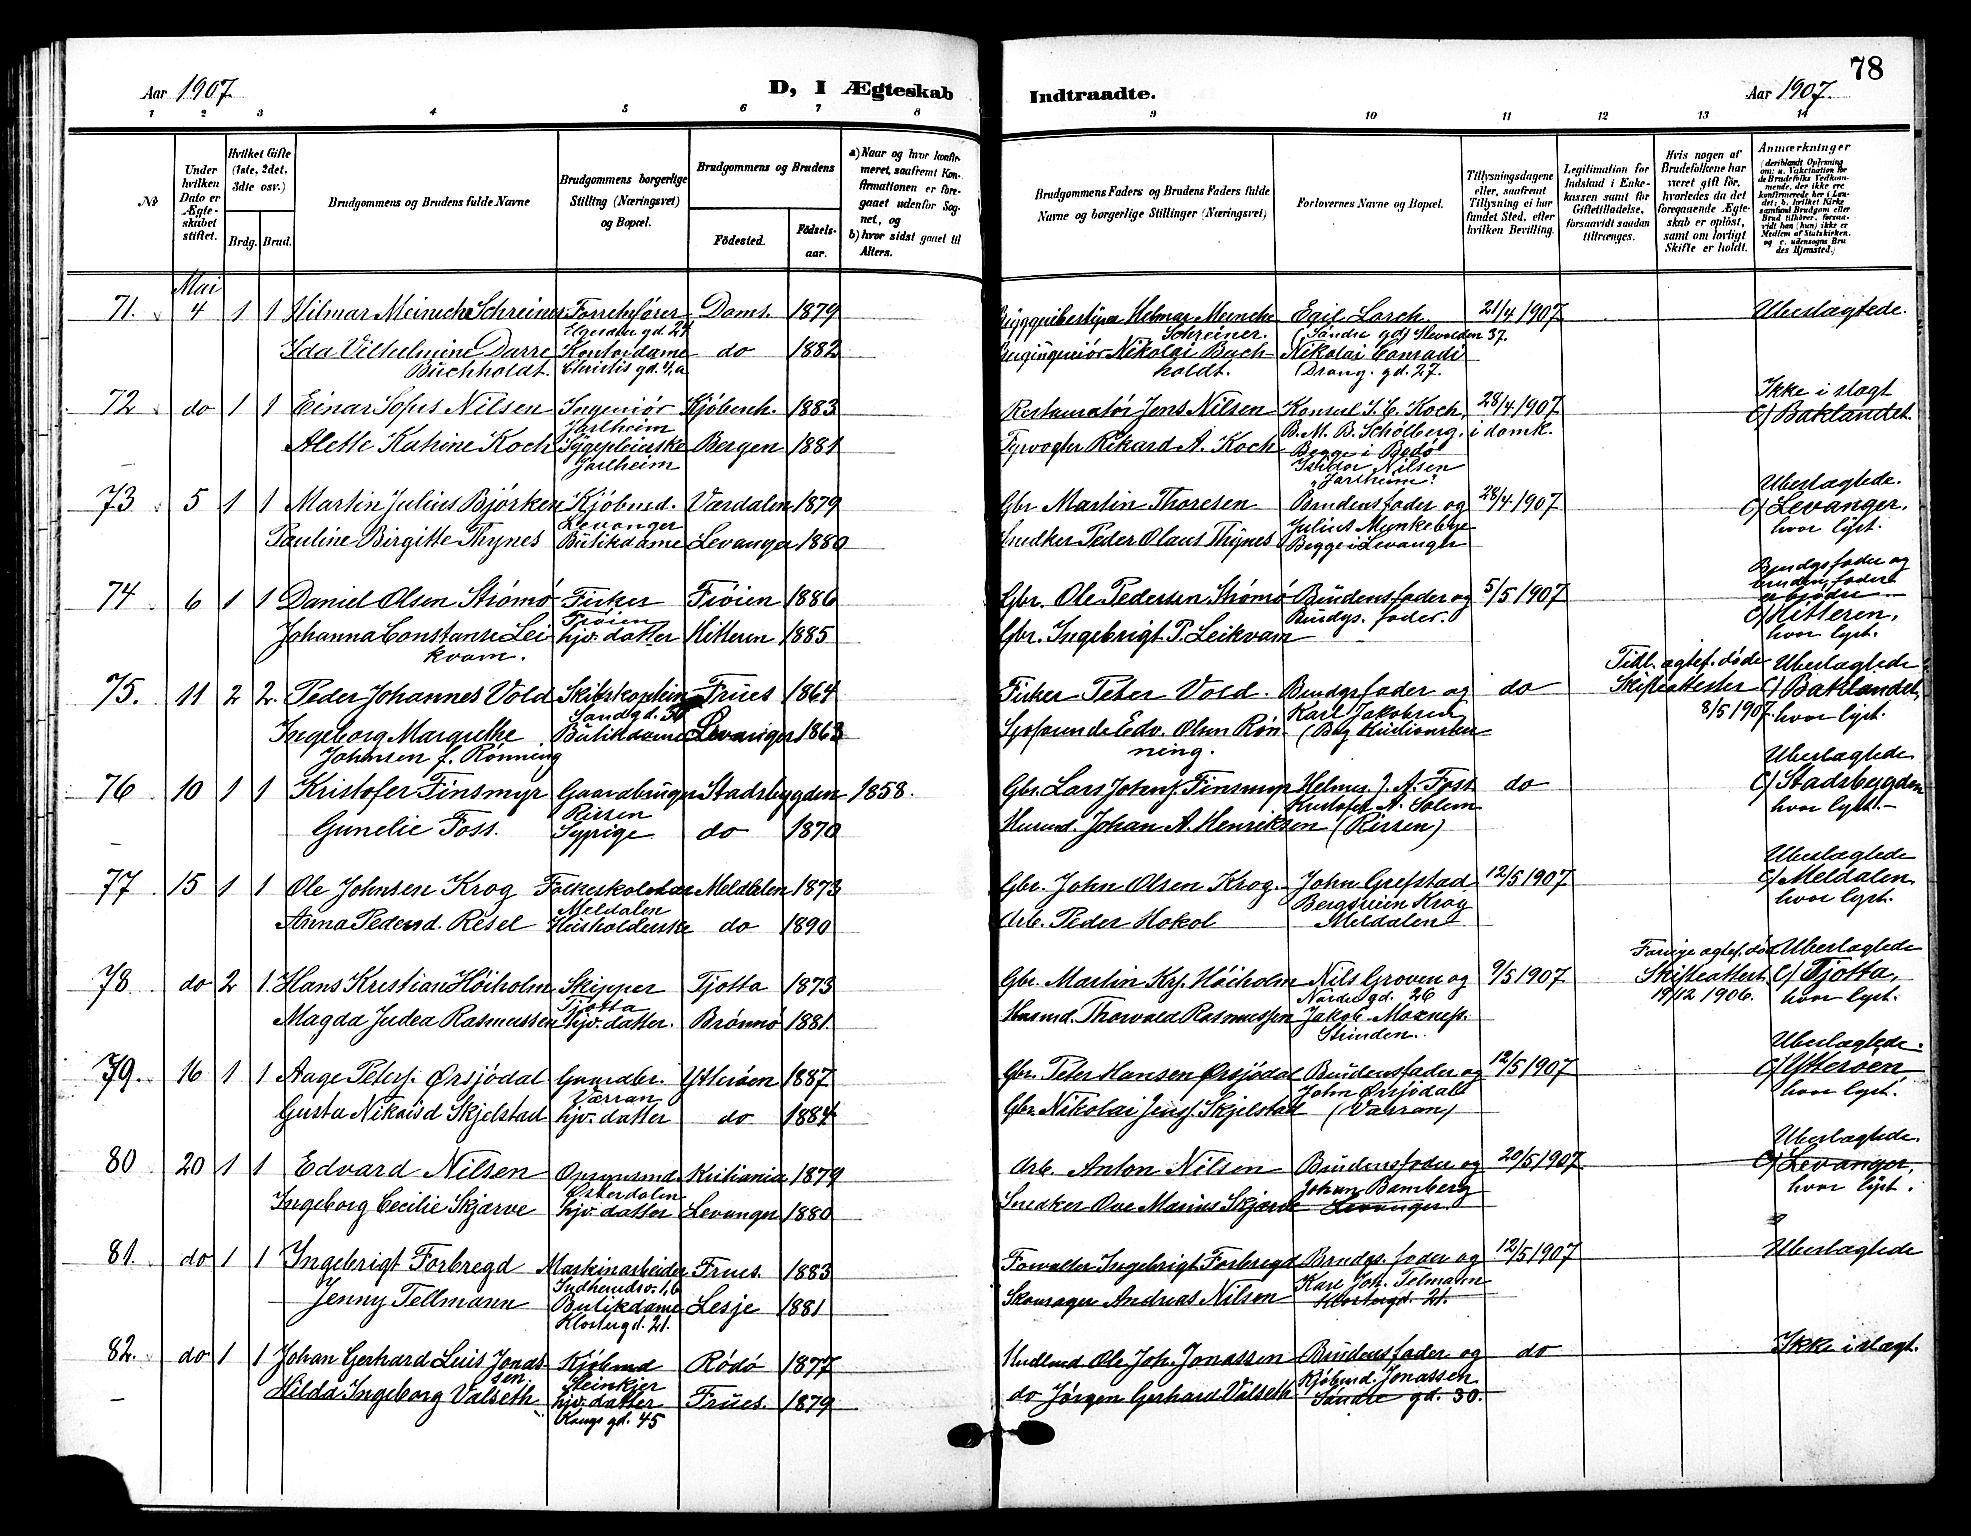 78
Aar 1907
D, I Ægteskab
Indtraadte.
Aar 1907.
1 2 3 4 5 6 7 8
9 10 11 12 13 14
Nr.
Under hvilken Dato er Ægteskabet stiftet.
Hvilket Gifte (1ste, 2det, 3die osv.)
Brdg. Brud.
Brudgommens og Brudens fulde Navne
Brudgommens borgerlige Stilling (Næringsvei) og Bopæl.
Brudgommens og Brudens
Fødested.
Fødselsaar.
a) Naar og hvor konfirmeret, saafremt Konfirmationen er foregaaet udenfor Sognet, og
b) hvor sidst gaaet til Alters.
Brudgommens Faders og Brudens Faders fulde Navne og borgerlige Stillinger (Næringsvei)
Forlovernes Navne og Bopæl.
Tillysningsdagene eller, saafremt Tillysning ei har fundet Sted, efter hvilken Bevilling.
Legitimation for Indskud i Enkekassen samt for Giftetilladelse, forsaavidt saadan tiltrænges.
Hvis nogen af Brudefolkene har været gift før, hvorledes da det foregaaende Ægteskab er opløst, samt om lovligt Skifte er holdt.
Anmærkninger
Mai
71. 4 1 1 Hilmar Meincke Schreiner Doms. 1879 Schreiner. Egil Lorch. 21/4 1907 Ubeslægtede.
Ida Vilhelmine Darre Buchholdt. Kontordame do 1882 Nikolai Buchholdt. Nikolai Conradi
72 do 1 1 Einar Sofus Nilsen Ingeniør Jarlheim Kjøbenh. 1883 Restauratør Jens Nilsen Konsul J. C. Koch, B. M. B. Schølberg, 28/4 1907 i domk. Ikke i slægt C/ Baklandet.
Alette Katrine Koch Sygepleierske Jarlheim Bergen 1881 Rikard A. Koch Begge i Bodø Nilsen "Jarlheim"
73 5 1 1 Martin Julius Bjørken Kjøbmd. Levanger Værdalen 1879 Gbr. Martin Thoresen Brudens fader og 28/4 1907 Ubeslægtede. C/ Levanger, hvor lyst.
Pauline Birgitte Thynes Butikdame Levanger 1880 Snedker Peder Olaus Thynes Julius Mynkebye Begge i Levanger
74 6 1 1 Daniel Olsen Strømø Fisker Frøien Frøien 1886 Gbr. Ole Pedersen Strømø Brudens fader og Brudgs. fader. 5/5 1907 Brudgs fader og brudens fader er brødre C/ Hitteren, hvor lyst.
Johanna Constanse Leikvam. hjv. datter Hitteren 1885 Gbr. Ingebrigt P. Leikvam
75. 11 2 2. Peder Johannes Vold Frues 1864 Fisker Peter Vold. Brudgs fader og Karl Jakobsen do Tidl. ægtef. døde Skifteattester 8/5 1907. Ubeslægtede C/ Baklandet, hvor lyst.
Ingeborg Margrethe Johnsen f. Rønning Butikdame Levanger 1863 Edv. Olsen Rønning.
76 10 1 1 Kristofer Finsmyr Gaardbruger Rissen Stadsbygden 1858. Gbr. Lars Johns. Finsmyr Helmer J. A. Foss Kristofer A. Solem do Ubeslægtede C/ Stadsbygden hvor lyst.
Gunelie Foss. Sypige do 1870 Husmd. Johan A. Henriksen (Rissen)
77 15 1 1 Ole Johnsen Krog Meldalen Meldalen 1873 Gbr. John Olsen Krog. John Grefstad 12/5 1907 Ubeslægtede C/ Meldalen hvor lyst.
Anna Pedersd. Resel Husholderske do 1890 Arb. Peder Hokol Bergsvein Krog Meldalen
78 do 2 1. Hans Kristian Høiholm Skipper Tjotta Tjotta 1873 Gbr. Martin Krs. Høiholm Nils Groven og Nordregd. 26 9/5 1907 Forrige ægtef. død Skifteattest 19/12 1906. Ubeslægtede C/ Tjotta, hvor lyst.
Magda Judea Rasmussen hjv. datter. Brønnø 1881. Husmd. Thorvald Rasmussen Jakob Moxness. Strinden.
79. 16 1 1 Aage Peters. Ørsjødal Gaardbr. Værran Ytterøen 1887 Gbr. Peter Hansen Ørsjødal Brudens fader og 12/5 1907 Ubeslægtede. C/ Ytterøen hvor lyst.
Gusta Nikolsd Skjelstad hjv. datter do 1884 Gbr. Nikolai Jens. Skjelstad John Ørsjødal (Værran)
80 20 1 1 Edvard Nilsen Østerdalen Kristiania 1879 Arb. Anton Nilsen Brudens fader og 20/5 1907 Ubeslægtede. C/ Levanger, hvor lyst.
Ingeborg Cecilie Skjærve hjv. datter Levanger 1880 Snedker Ove Marius Skjærve Johan Bamberg Levanger.
81. do 1 1 Ingebrigt Forbregd Maskinarbeider Frues. 1883 Ingebrigt Forbregd Brudgs. fader og 12/5 1907 Ubeslægtede
Jenny Tellmann Butikdame Klostergd. 21. Lesje 1881 Skomager Andreas Nilsen Karl Joh. Telmann Klostergd. 21.
82. do 1 1 Johan Gerhard Luis Jonassen. Kjøbmd Steinkjer Rødø 1877 Ole Joh. Jonassen Brudens fader og do Ikke i slægt.
Hilda Ingeborg Valseth hjv. datter Kongs gd. 45 Frues. 1879 do Jørgen Gerhard Valseth Kjøbmd. Jonassen Søndre gd. 30.